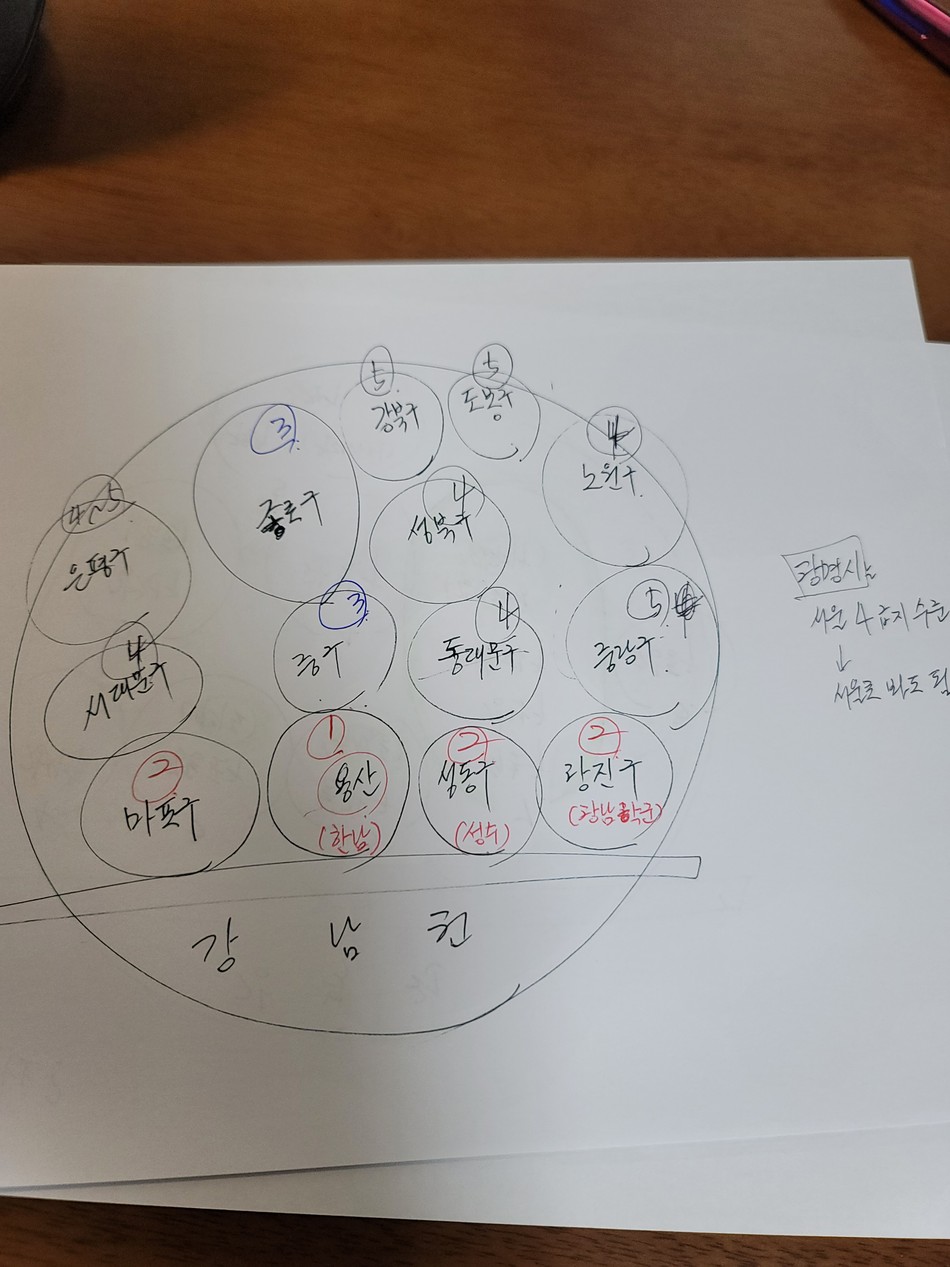 5
강북구
5
도봉구
3
종로구
4
노원구
4~5
은평구
4
성북구
4
서대문구
3
중구
4
동대문구
5
중랑구
2
마포구
1
용산
(한남)
2
성동구
(성수)
2
광진구
(강남 학군)
강 남 권
광명시는
서울 4 급지 수준
↓
서울로 봐도 됨